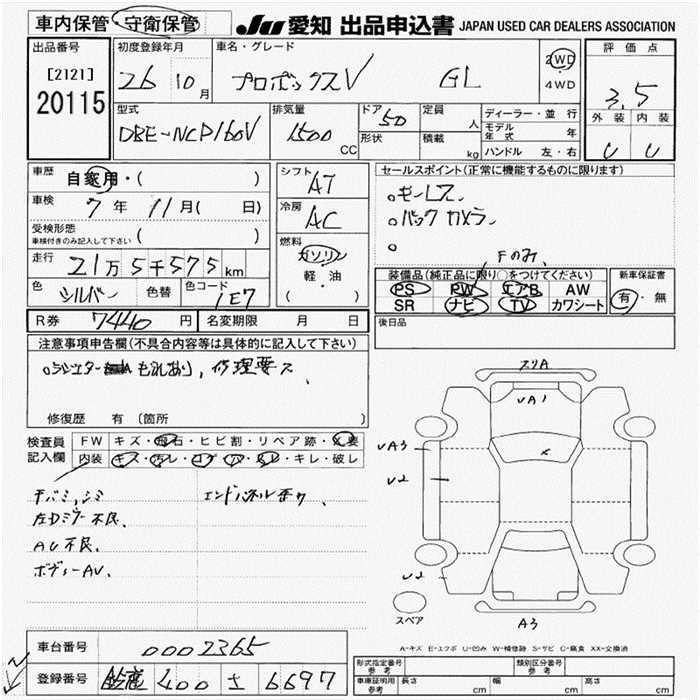 車内保管・守衛保管 JU 愛知 出品申込書 JAPAN USED CAR DEALERS ASSOCIATION
出品番号 初度登録年月 車名・グレード 評価点
[2121] 26 10月 プロボックスV GL 2WD・4WD 3.5
20115
型式 排気量 ドア 50 定員 人 ディーラー・並行 外装 内装
DBE-NCP160V 1500 CC 形状 積載 kg モデル年式 年 U U
ハンドル 左・右
車歴 自家用・( ) シフト AT セールスポイント(正常に機能するものに限ります)
車検 7年 11月( 日) 冷房 AC 。キーレス
受検形態 車検付きのみ記入して下さい ( ) 。バックカメラ
走行 21万5千575km 燃料 ガソリン 。
軽・油 Fのみ
色 シルバー 色替 色コード 1E7 ( ) 装備品(純正品に限り○をつけてください) 新車保証書
PS PW エアB AW 有・無
SR ナビ TV カワシート
R券 7440円 名変期限 月 日 後日品
注意事項申告欄(不具合内容等は具体的に記入して下さい)
もれあり,修理要ス
修復歴 有 〔箇所 〕
検査員 FW キズ・飛石・ヒビ割・リペア跡・交要
記入欄 内装 キズ・汚レ・コゲ・穴・スレ・キレ・破レ
エンドパネル歪り、
左Dミラー不良、
AC不良、
ボディーAU、
スリA
UA1
UA3
U2
×
U2
A3
スペア
A-キズ E-エクボ U-凹み W-補修跡 S-サビ C-腐食 XX-交換済
車台番号 0002365
登録番号 鈴鹿 400 さ 6697
形式指定番号 参考 類別区分番号 参考
車庫証明用 参考 長さ cm 幅 cm 高さ cm